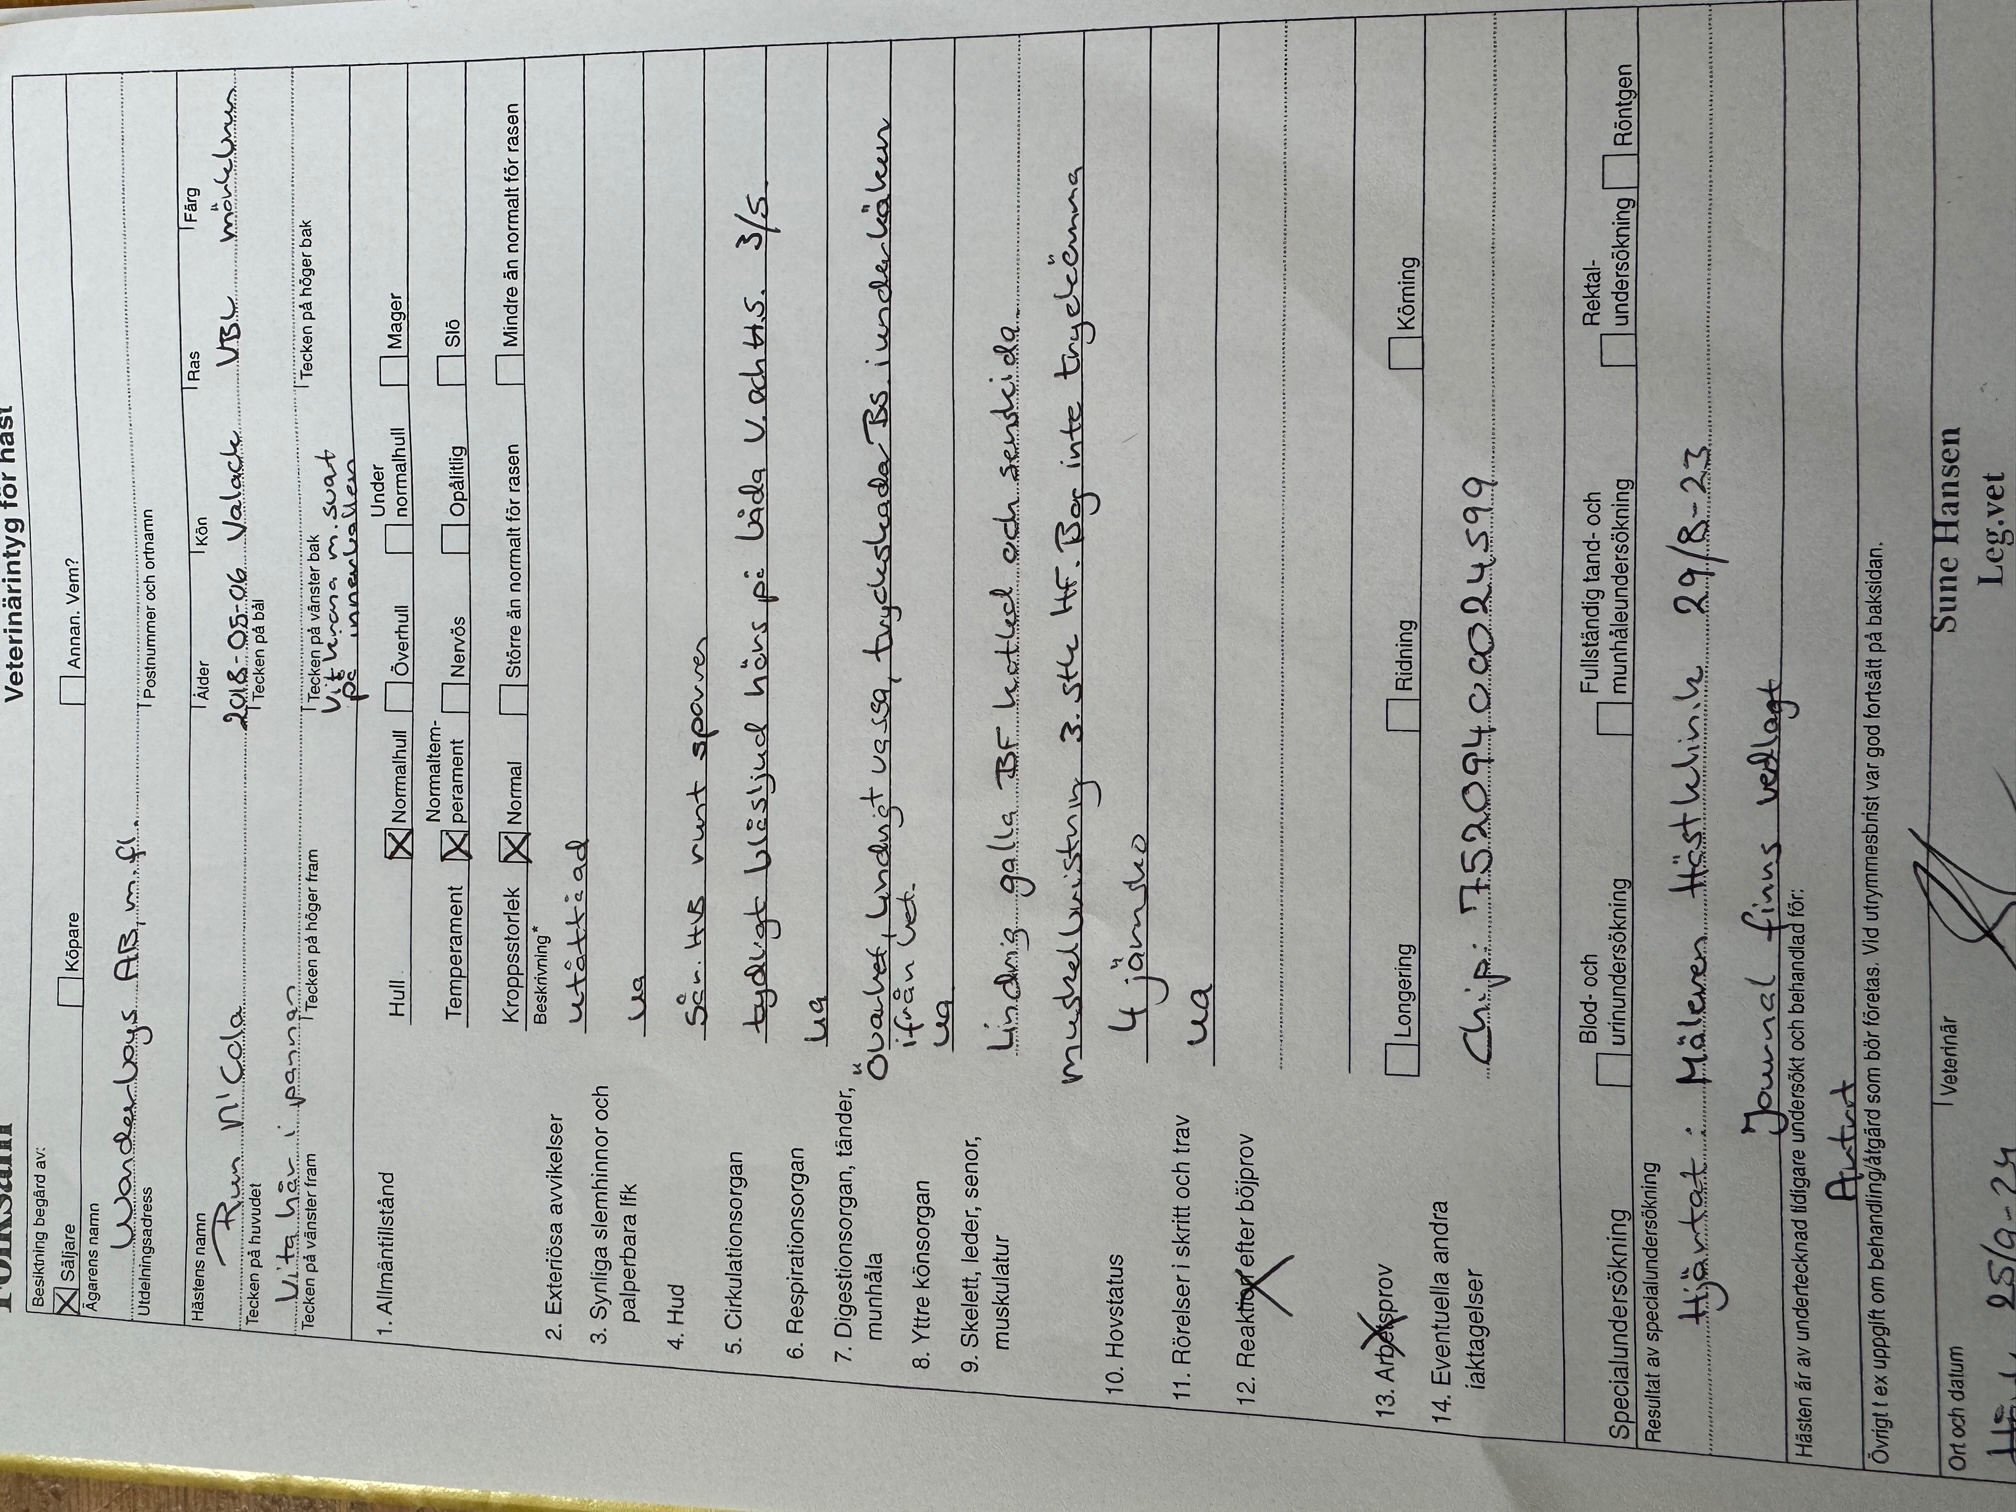 Folksam
Veterinärintyg för häst
Besiktning begärd av:
☒ Säljare ☐ Köpare ☐ Annan. Vem?
Ägarens namn
Wanderboys AB, m.fl.
Utdelningsadress Postnummer och ortnamn
Hästens namn Ålder Kön Ras Färg
Run n'Cola 2018-05-06 Valack VBL mörkbrun
Tecken på huvudet Tecken på bål
Vita hår i pannan
Tecken på vänster fram Tecken på höger fram Tecken på vänster bak Tecken på höger bak
Vit krona m. svart
på innerballen
1. Allmäntillstånd Hull ☒ Normalhull ☐ Överhull ☐ Under normalhull ☐ Mager
Temperament ☒ Normaltem-perament ☐ Nervös ☐ Opålitlig ☐ Slö
Kroppsstorlek ☒ Normal ☐ Större än normalt för rasen ☐ Mindre än normalt för rasen
Beskrivning*
2. Exteriösa avvikelser utåttåad
3. Synliga slemhinnor och
palperbara lfk ua
4. Hud Sår. HB runt sparven
5. Cirkulationsorgan tydligt blåsljud hörs på båda V. och H.S. 3/5.
6. Respirationsorgan ua
7. Digestionsorgan, tänder, Övarket, lindrigt vassa, tryckskada Bs. i underkäken
munhåla ifrån bet.
8. Yttre könsorgan ua
9. Skelett, leder, senor, Lindrig galla BF kotled och senskida
muskulatur muskelbristning 3. stk HF. Bog inte tryckömma
10. Hovstatus 4 järnsko
11. Rörelser i skritt och trav ua
12. Reaktion efter böjprov
13. Arbetsprov ☐ Longering ☐ Ridning ☐ Körning
14. Eventuella andra
iaktagelser Chip: 752094000024599
Specialundersökning ☐ Blod- och urinundersökning ☐ Fullständig tand- och munhåleundersökning ☐ Rektal-undersökning ☐ Röntgen
Resultat av specialundersökning
Hjärtat: Mälaren Hästklinik 29/8-23
Journal finns vedlagt
Hästen är av undertecknad tidigare undersökt och behandlad för:
Övrigt t ex uppgift om behandling/åtgärd som bör företas. Vid utrymmesbrist var god fortsätt på baksidan.
Ort och datum Veterinär
25/9-24
Sune Hansen
Leg.vet